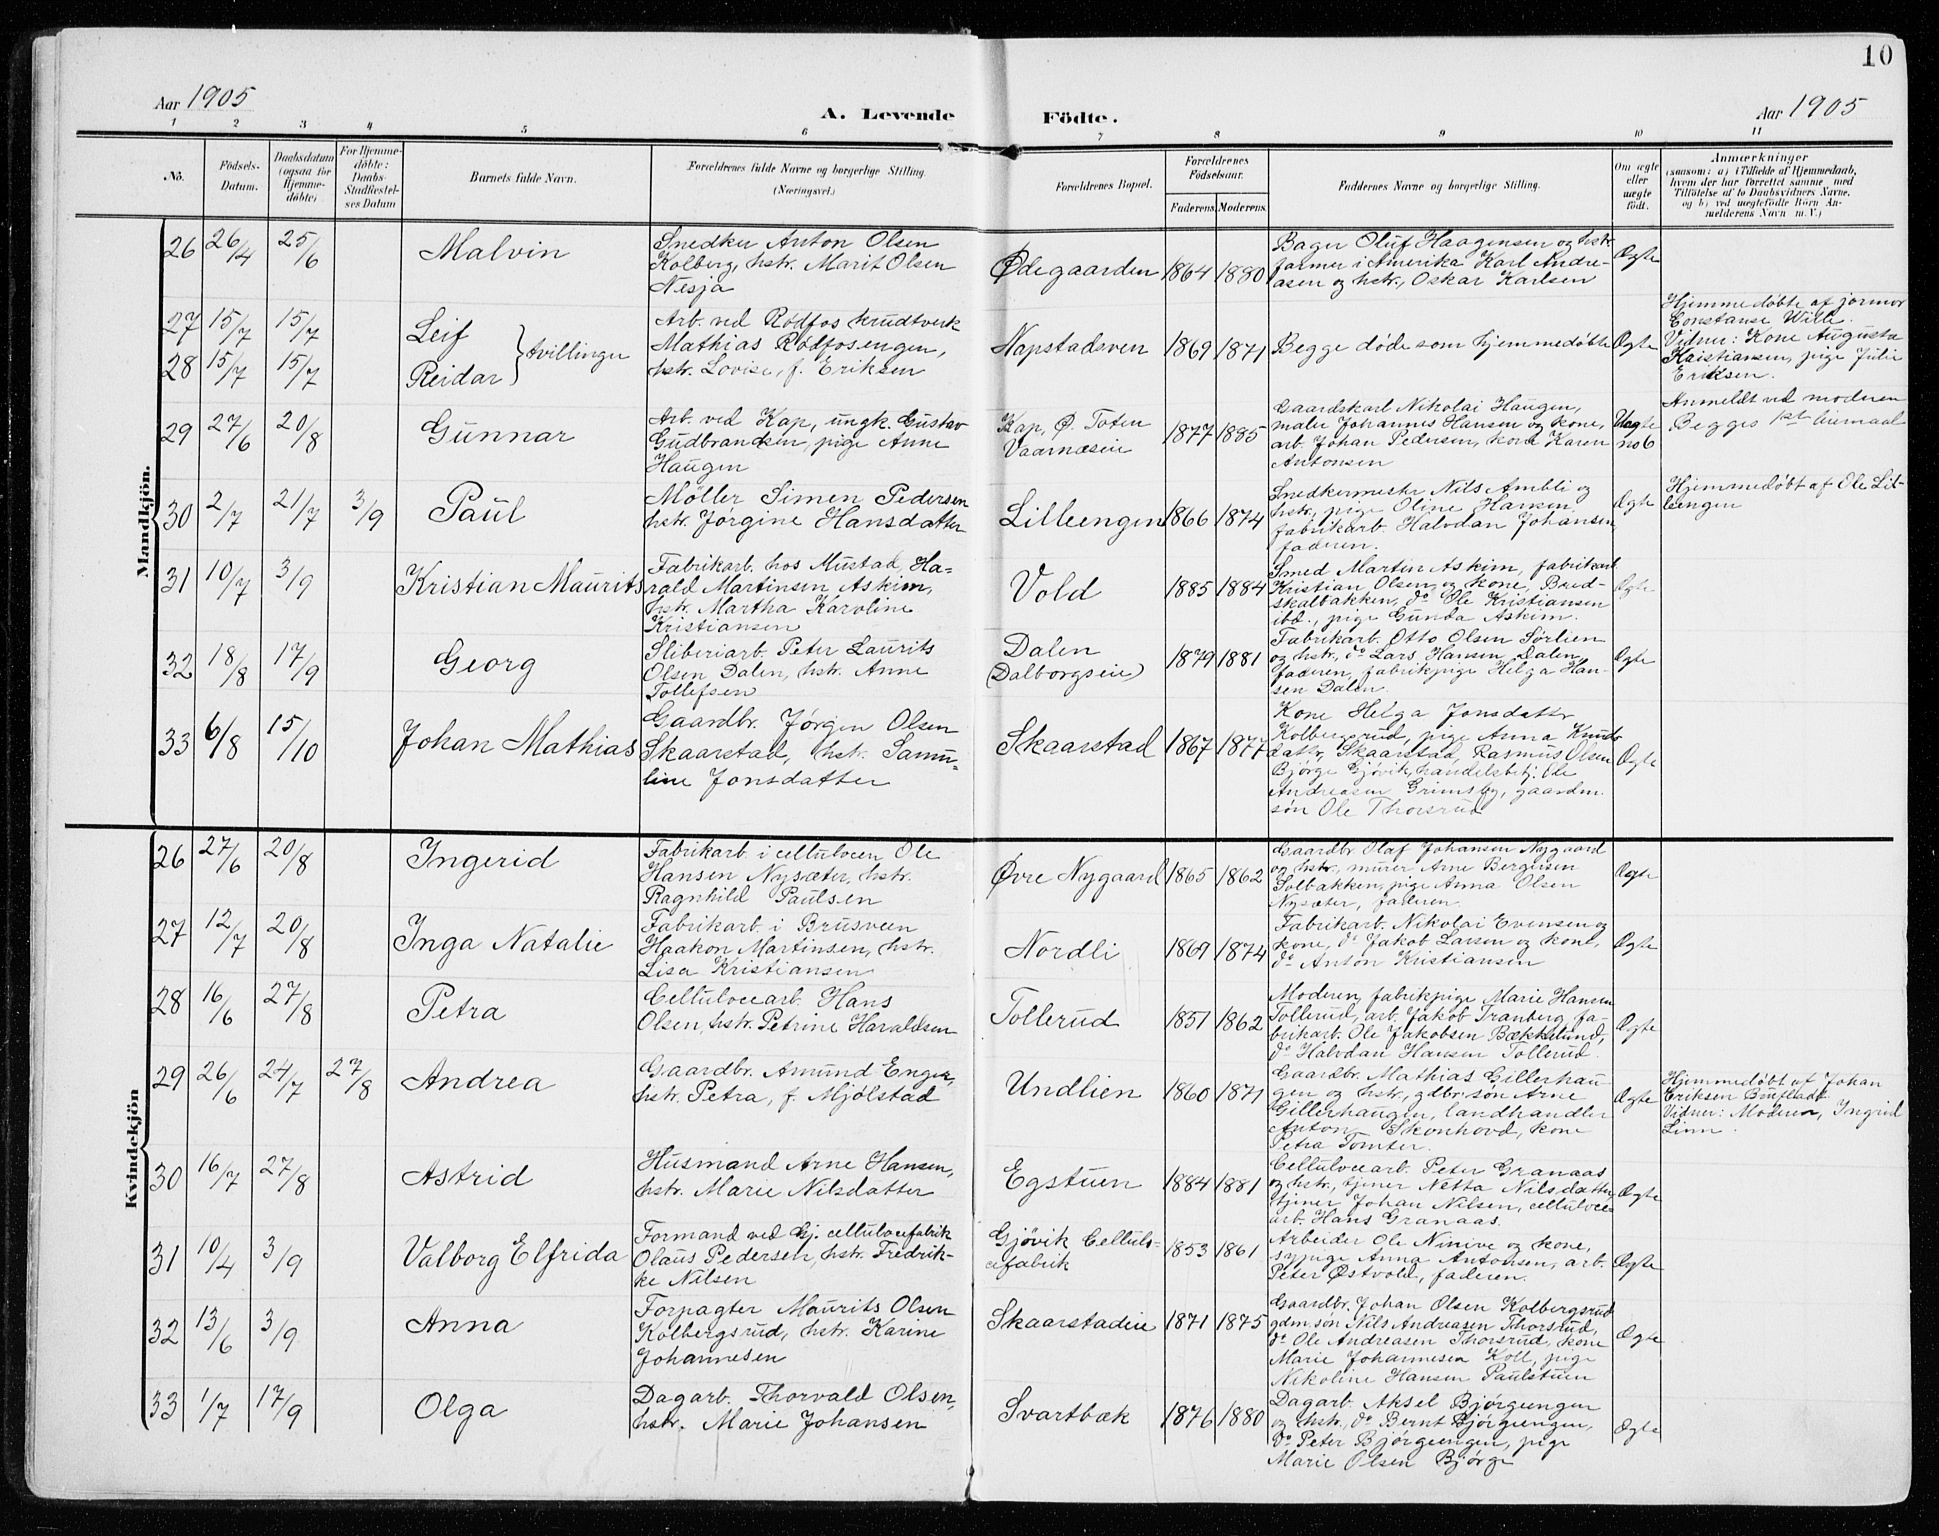 10
Aar 1905
A. Levende Födte.
Aar 1905
1 2 3 4 5 6 7 8 9 10 11
No.
Födsels-
Datum.
Daabsdatum
(ogsaa for
Hjemme-
döbte)
For Hjemme-
döbte:
Daabs-
Stadfæstel-
ses Datum
Barnets fulde Navn.
Forældrenes fulde Navne og borgerlige Stilling.
(Næringsvei.)
Forældrenes Bopæl.
Forældrenes
Födselsaar.
Faderens. Moderens.
Faddernes Navne og borgerlige Stilling.
Om ægte
eller
uægte
født.
Anmærkninger
(saasom: a) i Tilfælde af Hjemmedaab,
hvem der har forrettet samme med
Tilföielse af to Daabsvidners Navne,
og b) ved uægtefödte Börn An-
melderens Navn m. V.)
Mandkjön.
26 26/4 25/6 Malvin
Snedker Anton Olsen
Kolberg, hstr. Marit Olsen
Nesja
Ødegaarden 1864 1880
Bager Oluf Haagensen og hstr.
farmer i Amerika Karl Andre-
asen og hstr., Oskar Karlsen
Ægte
27 15/7 15/7 Leif
28 15/7 15/7 Reidar } tvillinger
Arb. ved Rødfos krudtverk
Mathias Rødfosengen,
hstr. Lovise, f. Eriksen
Napstadsven 1869 1871
Begge døde som hjemmedøbte
Ægte
Hjemmedøbte af jormor
Constanse Wille.
Vidner: Kone Augusta
Kristiansen, pige Julie
Eriksen.
29 27/6 20/8 Gunnar
Arb. ved Kap, ungk. Gustav
Gudbrandsen, pige Anne
Haugen
Kap, Ø. Toten
Vaarnæseie
1877 1885
Gaardskarl Nikolai Haugen,
maler Johannes Hansen og kone,
arb. Johan Pedersen, kone Karen
Antonsen
Uægte
no 6
Anmeldt ved moderen
Begges 1st leiermaal
30 2/7 21/7 3/9 Paul
Møller Simen Pedersen
hstr. Jørgine Hansdatter
Lilleengen 1866 1874
Snedkermestr Nils Ambli og
hstr., pige Oline Hansen,
fabrikarb. Halvdan Johansen,
faderen.
Ægte
Hjemmedøbt af Ole Lil-
leengen
31 10/7 3/9 Kristian Maurits
Fabrikarb. hos Mustad, Ha-
rald Martinsen Askim,
hstr. Martha Karoline
Kristiansen
Vold 1885 1884
Smed Martin Askim, fabrikarb.
Kristian Olsen og kone, Bred-
skalbakken, do Ole Kristiansen
ibd., pige Gunda Askim.
Ægte
32 18/8 17/9 Georg
Sliberiarb. Peter Laurits
Olsen Dalen, hstr. Anne
Tollefsen
Dalen
(Dalborgseie)
1879 1881
Fabrikarb. Otto Olsen Sørlien
og hstr., do Lars Hansen Dalen,
faderen, fabrikpige Helga Han-
sen Dalen.
Ægte
33 6/8 15/10 Johan Mathias
Gaardbr. Jørgen Olsen
Skaarstad, hstr. Samu-
line Jonsdatter
Skaarstad 1867 1877
Kone Helga Jonsdattr
Kolbergsrud, pige Anna Knuds-
dattr, Skaarstad, Rasmus Olsen
Bjørge Gjøvik, handelsbetj. Ole
Andreasen Grimsby, gaardm.
søn Ole Thorsrud
Ægte
Kvindekjön
26 27/6 20/8 Ingerid
Fabrikarb. i cellulosen Ole
Hansen Nysæter, hstr.
Ragnhild Paulsen
Øvre Nygaard 1865 1862
Gaardbr. Olaf Johansen Nygaard
og hstr., murer Arne Bergersen
Solbakken, pige Anna Olsen
Nysæter, faderen.
Ægte
27 12/7 20/8 Inga Natalie
Fabrikarb. i Brusveen
Haakon Martinsen, hstr.
Lisa Kristiansen
Nordli 1869 1874
Fabrikarb. Nikolai Evensen og
kone, do Jakob Larsen og kone,
do Anton Kristiansen
Ægte
28 16/6 27/8 Petra
Cellulosearb. Hans
Olsen, hstr. Petrine Haraldsen
Tollerud 1851 1862
Moderen, fabrikpige Marie Hansen
Tollerud, arb. Jakob Tranberg, fa-
brikarb. Ole Jakobsen Bækkelund,
do Halvdan Hansen Tollerud.
Ægte
29 26/6 24/7 27/8 Andrea
Gaardbr. Amund Enger,
hstr. Petra, f. Mjølstad
Undlien 1860 1871
Gaardbr. Mathias Gillerhau-
gen og hstr., gdbr.søn Arne
Gillerhaugen, landhandler
Anton Skonhovd, kone
Petra Tomter.
Ægte
Hjemmedøbt af Johan
Eriksen Bufladt
Vidner: Moderen, Ingrid
Linn.
30 16/7 27/8 Astrid
Husmand Arne Hansen,
hstr. Marie Nilsdatter
Egstuen 1884 1881
Cellulosearb. Peter Granaas
og hstr., tjener Netta Nilsdatter,
tjener Johan Nilsen, cellulose-
arb. Hans Granaas.
Ægte
31 10/4 3/9 Valborg Elfrida
Formand ved Gj. cellulosefabrik
Olaus Pedersen, hstr. Fredrik-
ke Nilsen
Gjøvik Cellulo-
sefabrik
1853 1861
Arbeider Ole Ninive og kone,
sypige Anna Antonsen, arb.
Peter Østvold, faderen.
Ægte
32 13/6 3/9 Anna
Forpagter Maurits Olsen
Kolbergsrud, hstr. Karine
Johannesen
Skaarstadeie 1871 1875
Gaardbr. Johan Olsen Kolbergsrud
gdm.søn Nils Andreasen Thorsrud,
do Ole Andreasen Thorsrud, kone
Marie Johannesen Koll, pige
Nikoline Hansen Paulstuen
Ægte
33 1/7 17/9 Olga
Dagarb. Thorvald Olsen,
hstr. Marie Johansen
Svartbæk 1876 1880
Dagarb. Aksel Bjørgeengen
og hstr., do Bernt Bjørgeengen,
do Peter Bjørgeengen, pige
Marie Olsen Bjørge
Ægte